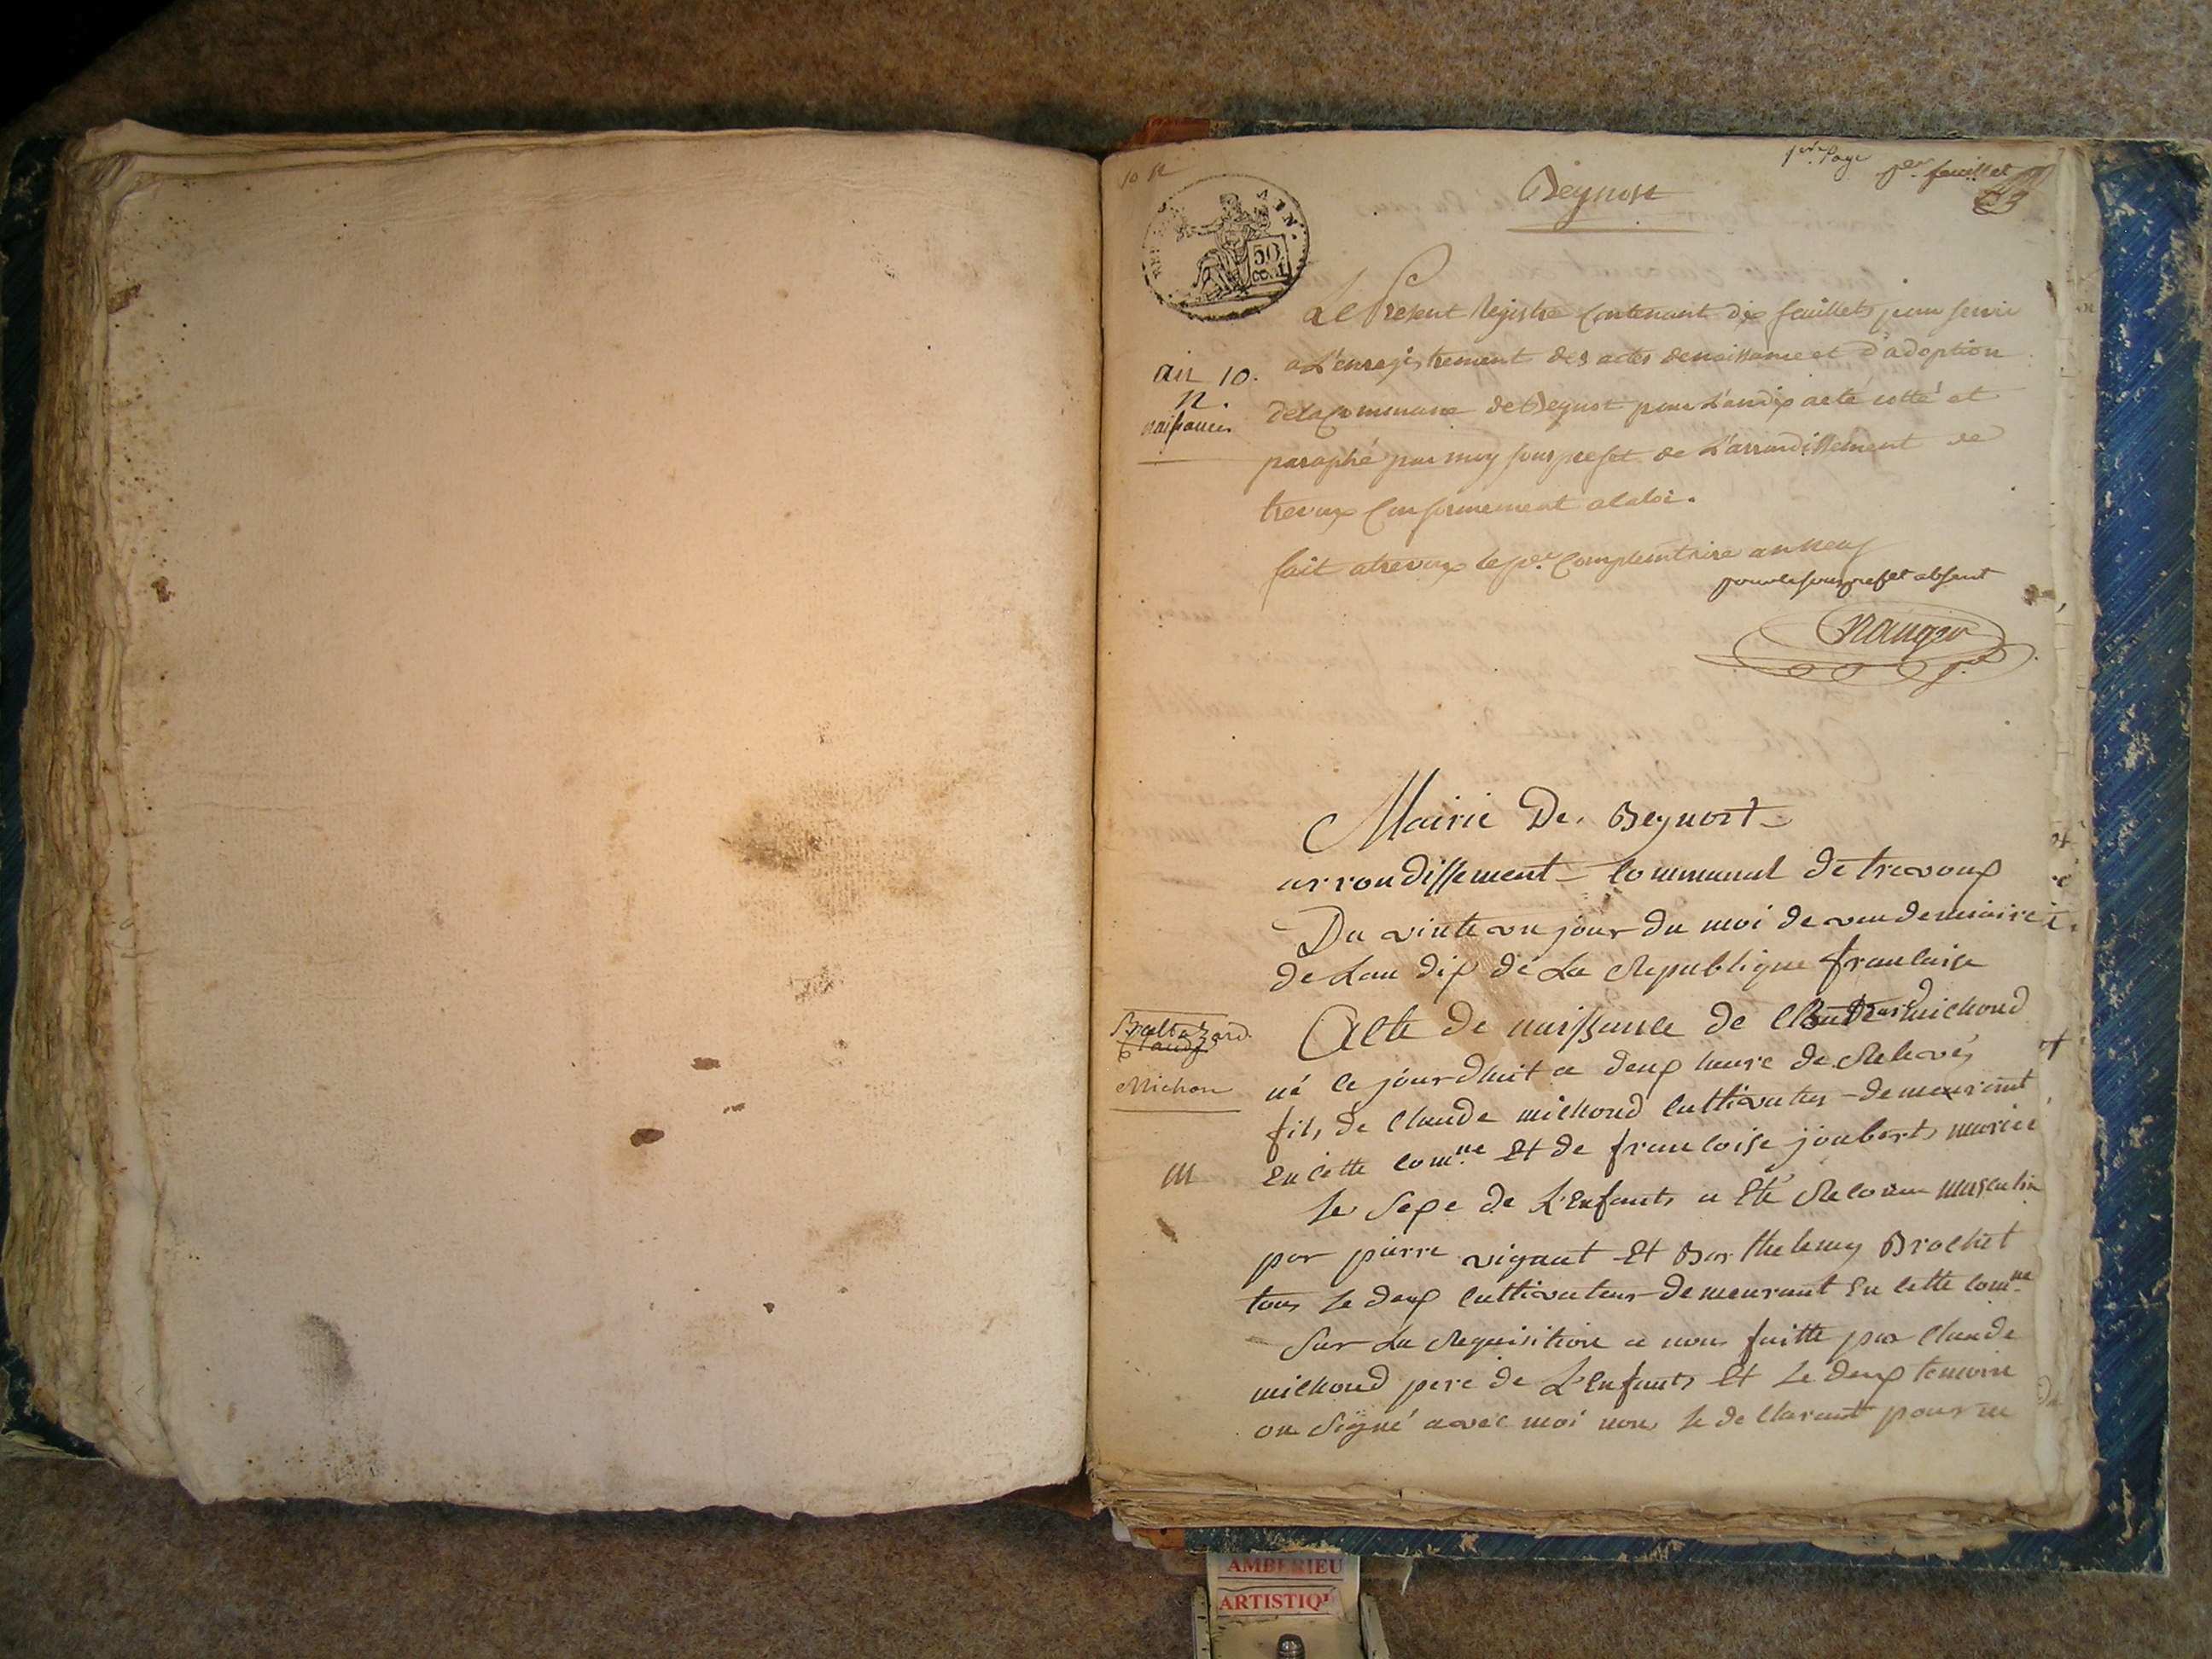 10 N
1ere Page
1er feuillet
Beynost
50
cent
Le Present Registre Contenant dix feuillets pour servir
a L'enregistrement des actes de naissance et d'adoption
de la Commune de Beynost pour L'an dix a eté cotté et
paraphé par moy sous prefet de L'arrondissement de
trevoux Conformement a la loi.
fait a trevoux le per Complementaire an neuf
pour le sous prefet absent
an 10.
N.
naissances
Mairie De Beynost
arrondissement Communal de trevoux
Du vinte un jour du moi de vendemiaire
de Lan dix de La Republique francaise
Acte de naissance de michoud
né ce jourdhuit a deux heure de Relevés
fils de Claude michoud Cultivateur demeurant
En cette comne Et de francoise joubert mariée
Le Sexe de L'Enfants a Eté Reconnu masculin
par pierre vignat Et Barthelemy Brochet
tous Le deux Cultivateur demeurant En cette comne
Sur La Requisition a nous faitte par Claude
michoud pere de L'Enfants Et Le deux temoin
on Signé avec moi non le declarant pour ne
Baltazard
Claude
Michon
M
AMBERIEU
ARTISTIQ